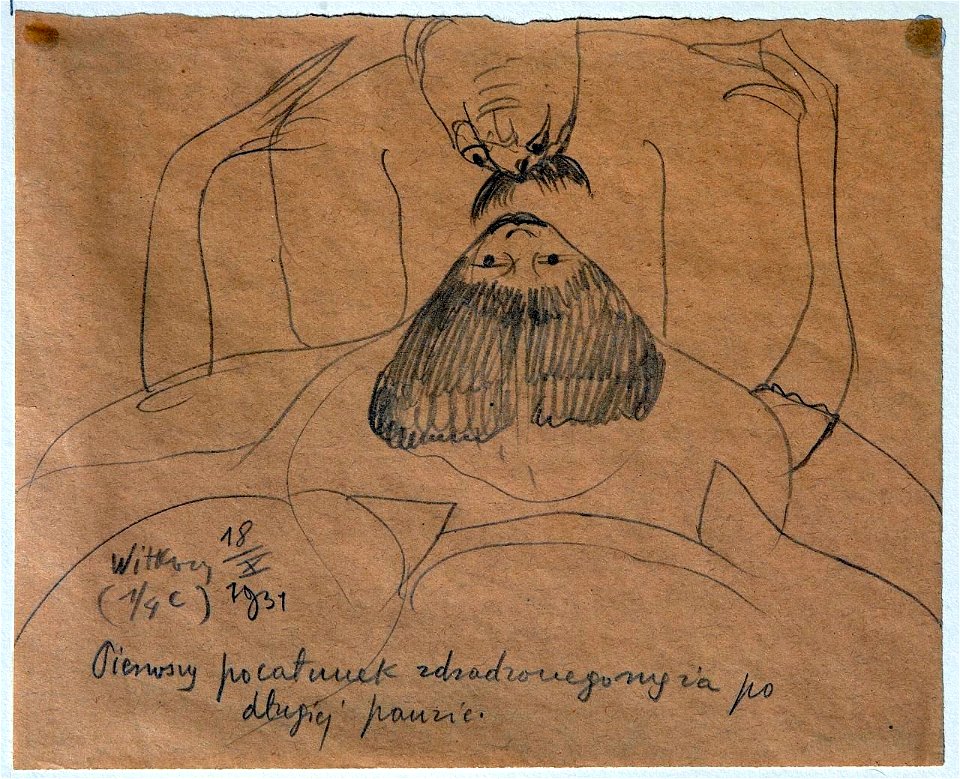 Witkacy 18/X
(1/4 c) 1931
Pierwszy pocałunek zdradzonego męża po
długiej pauzie.